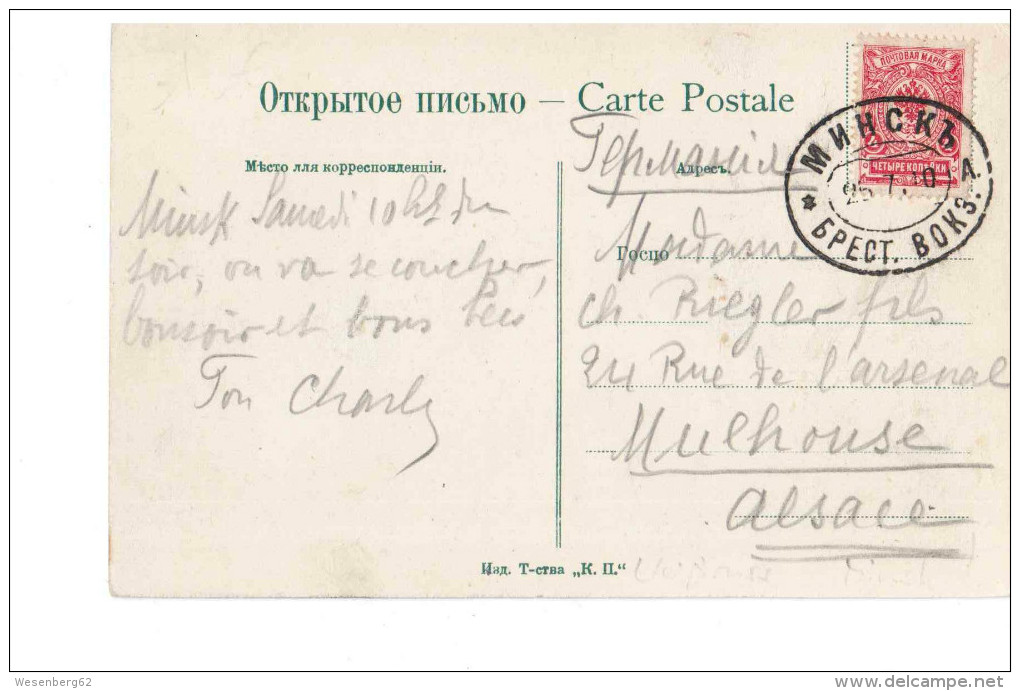 Открытое письмо — Carte Postale
Мѣсто лля корреспонденціи.
Адресъ.
ПОЧТОВАЯ МАРКА
ЧЕТЫРЕ КОПѢЙКИ
МИНСКЪ
БРЕСТ. ВОКЗ.
Германія
Minsk Samedi 10 du
soir, on va se coucher,
bonsoir et bons
Ton Charly
Госпо
Madame
Ch. Riegler fils
24 Rue de l'arsenal
Mulhouse
Alsace
Изд. Т-ства „К. П."
Wesenberg62
delcampe.net